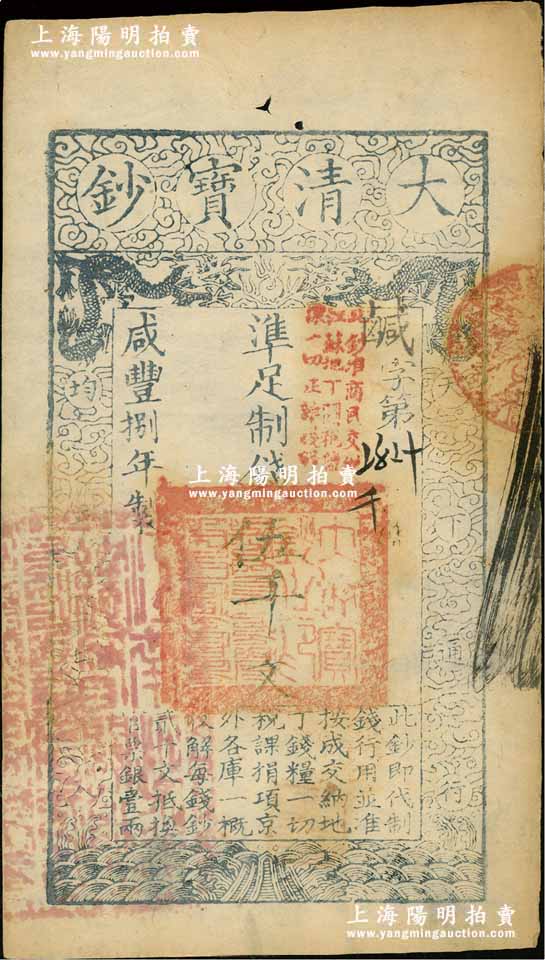 上海陽明拍賣
www.yangmingauction.com
大清寶鈔
鹹字第
2824
準足制錢伍千文
咸豐捌年製
此鈔即代制
錢行用並准
按成交納地
丁錢糧一切
稅課捐項京
外各庫一概
收解每錢鈔
貳千文抵換
官票銀壹兩
此鈔准商民交納
天下通行
均
上海陽明拍賣
www.yangmingauction.com
上海陽明拍賣
www.yangmingauction.com